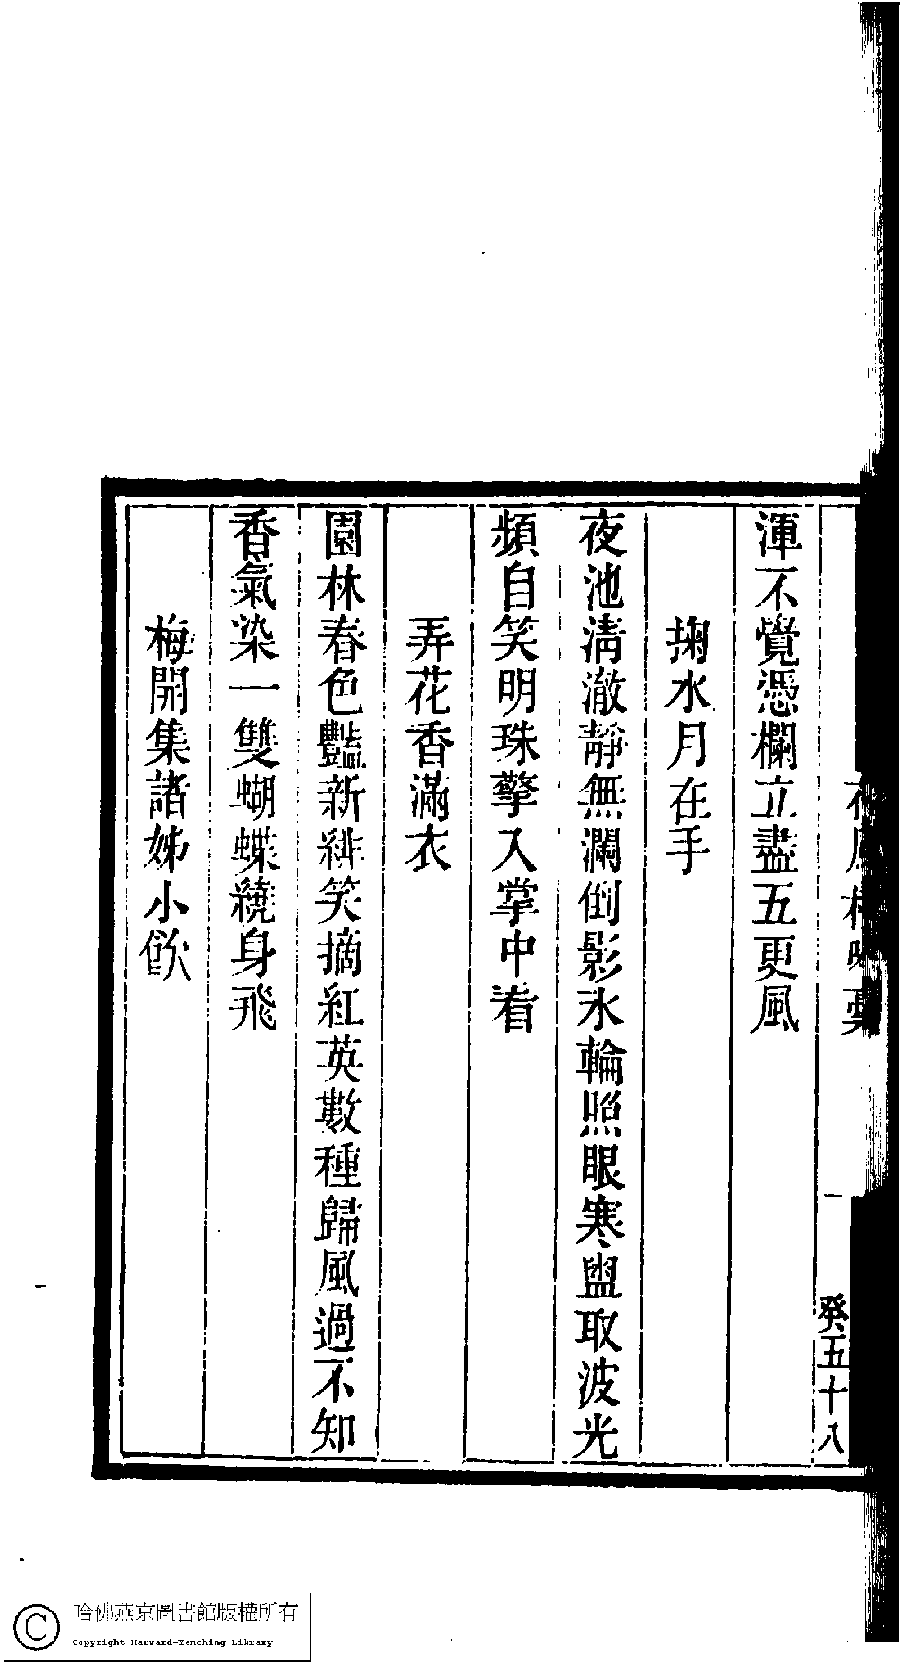 渾不覺憑欄立盡五更風
掬水月在手
夜池清澈靜無瀾倒影氷輪照眼寒盥取波光
頻自笑明珠擎入掌中看
弄花香滿衣
園林春色豔新緋笑摘紅英數種歸風過不知
香氣染一雙蝴蝶繞身飛
梅開集諸姊小飮
一
癸五十八
哈佛燕京圖書館版權所有
Copyright Harvard-Yenching Library